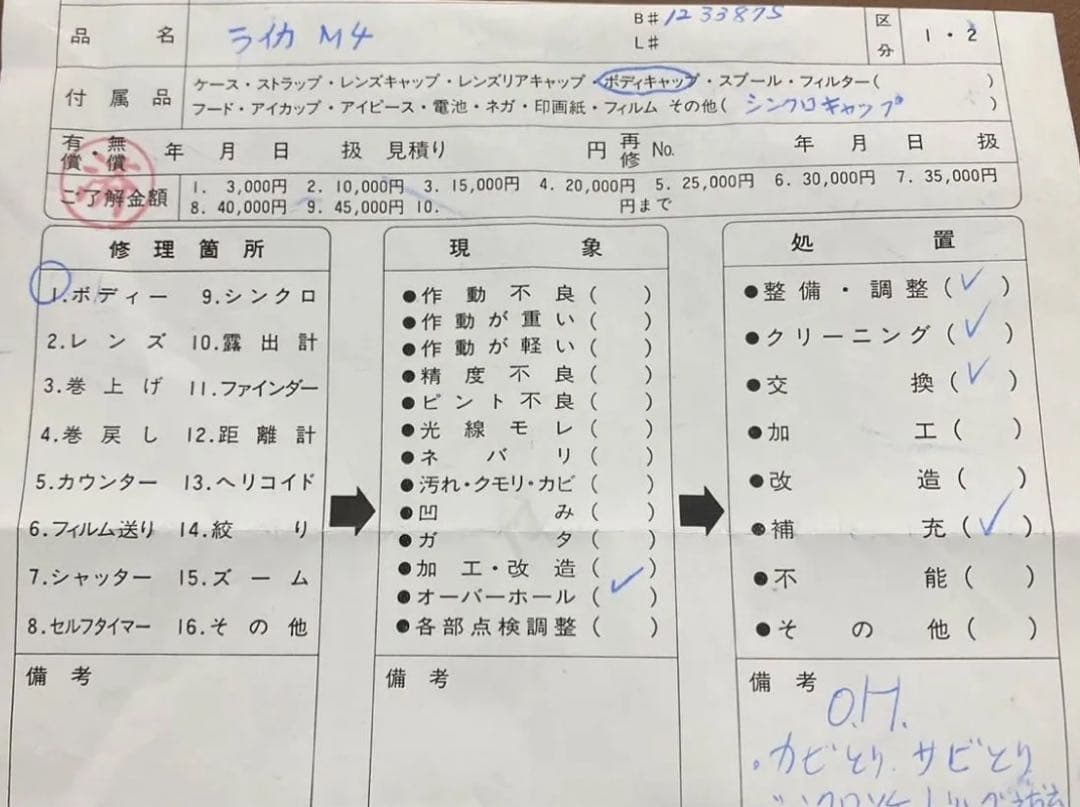 品名 ライカ M4 B♯1233875 区分 1・2
L♯
付属品 ケース・ストラップ・レンズキャップ・レンズリアキャップ・ボディキャップ・スプール・フィルター( )
フード・アイカップ・アイピース・電池・ネガ・印画紙・フィルム その他(シンクロキャップ )
有償・無償 年 月 日 扱 見積り 円 再修 No. 年 月 日 扱
ご了解金額 1. 3,000円 2. 10,000円 3. 15,000円 4. 20,000円 5. 25,000円 6. 30,000円 7. 35,000円
8. 40,000円 9. 45,000円 10. 円まで
修理箇所
1.ボディー 9.シンクロ
2.レンズ 10.露出計
3.巻上げ 11.ファインダー
4.巻戻し 12.距離計
5.カウンター 13.ヘリコイド
6.フィルム送り 14.絞り
7.シャッター 15.ズーム
8.セルフタイマー 16.その他
備考
現象
●作動不良( )
●作動が重い( )
●作動が軽い( )
●精度不良( )
●ピント不良( )
●光線モレ( )
●ネバリ( )
●汚れ・クモリ・カビ( )
●凹み( )
●ガタ( )
●加工・改造( )
●オーバーホール(✓)
●各部点検調整( )
備考
処置
●整備・調整(✓)
●クリーニング(✓)
●交換(✓)
●加工( )
●改造( )
●補充(✓)
●不能( )
●その他( )
備考 O.H.
・カビとり サビとり